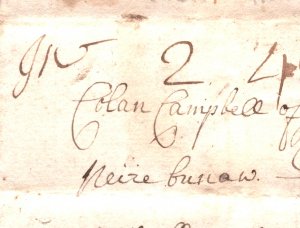 2 4
Colan Campbell of
Neire bunaw.